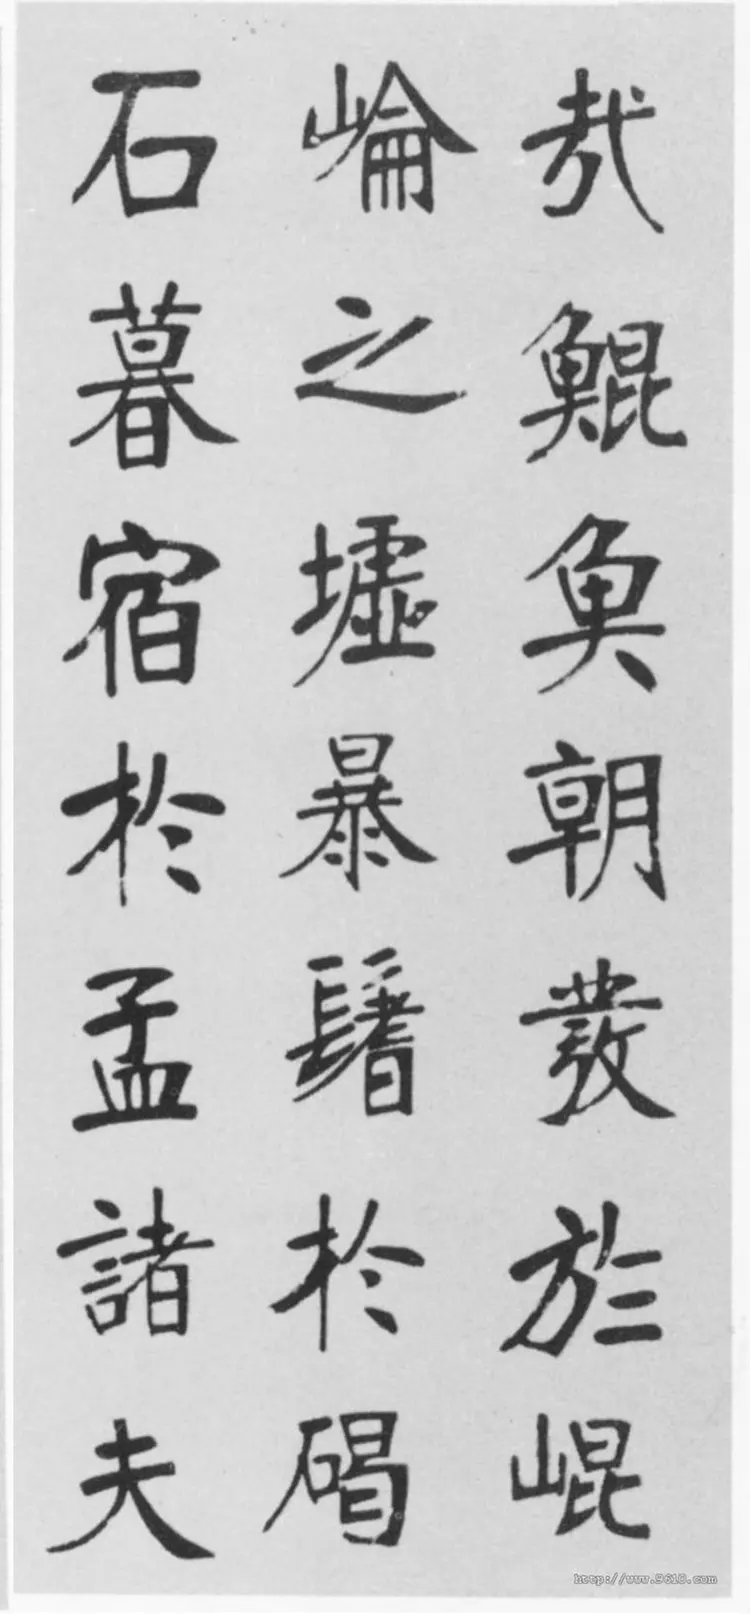 哉鯤魚朝發於崐
崘之墟暴鬐於碣
石暮宿於孟諸夫
http://www.9610.com